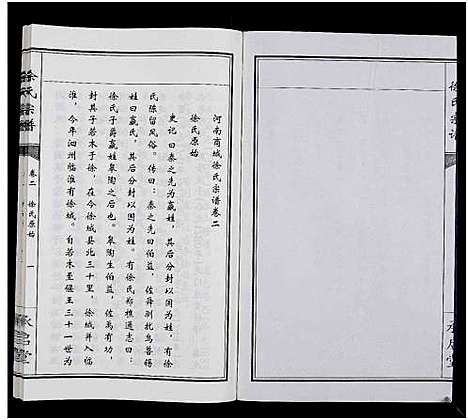 徐氏宗譜
河南商城徐氏宗谱卷二
徐氏原始
史记曰秦之先为嬴姓，其后分封以国为姓，有徐
氏陈留风俗。传曰：秦之先曰伯益，佐舜驯扰鸟兽锡
姓曰嬴氏，其后分封以国为姓。有徐氏郑樵通志曰：
徐氏子爵嬴姓皋陶之后也。皋陶生伯益，佐禹有功，
封其子若木于徐，在今徐城县北三十里，徐城并入临
淮，今年泗州临淮有徐城。自若木至偃王三十一世为
徐氏宗譜
卷二
徐氏原始
一
承启堂